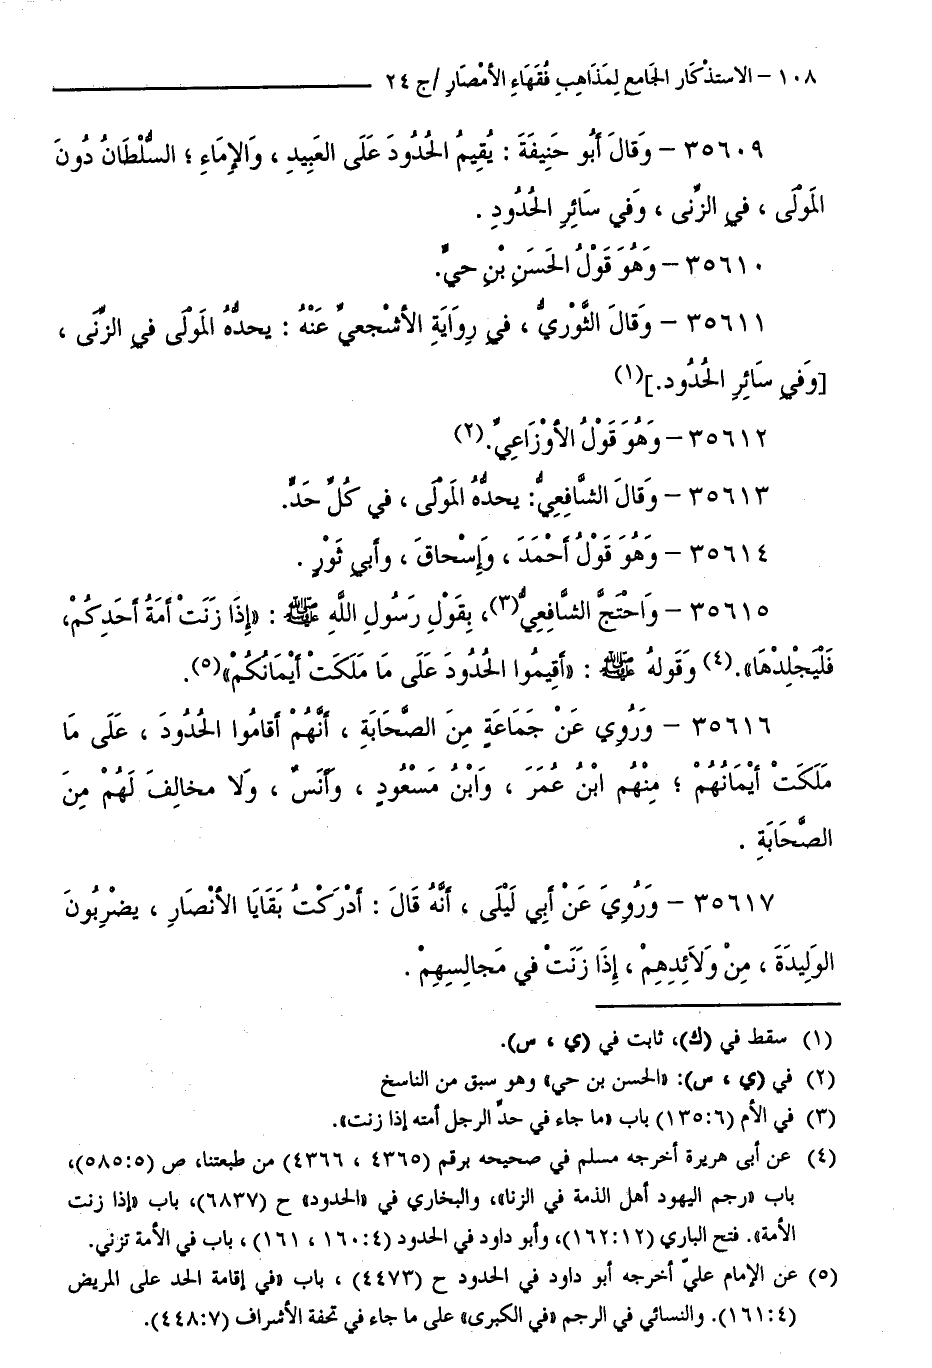 ١٠٨ – الاستذْكَار الجَامع لِمَذَاهِبِ فُقَهَاءِ الأمْصَارِ /ج ٢٤
٣٥٦٠٩ – وَقَالَ أَبُو حَنِيفَةَ : يُقِيمُ الحُدُودَ عَلَى العَبِيدِ ، وَالإِمَاءِ ؛ السُّلْطَانُ دُونَ
المَوْلَى ، فِي الزِّنَى ، وَفي سَائِرِ الحُدُودِ .
٣٥٦١٠ – وَهُوَ قَوْلُ الحَسَنِ بْنِ حيٍّ.
٣٥٦١١ – وَقَالَ الثَّوْرِيُّ ، في رِوَايَةِ الأشْجعيِّ عَنْهُ : يحدُّهُ المَوْلَى في الزِّنَى ،
[وَفي سَائِرِ الحُدُود.](١)
٣٥٦١٢ – وَهُوَ قَوْلُ الأوْزَاعِيِّ.(٢)
٣٥٦١٣ – وَقَالَ الشَّافِعِيُّ: يحدُّهُ المَوْلَى ، في كُلِّ حَدٍّ.
٣٥٦١٤ – وَهُوَ قَوْلُ أَحْمَدَ ، وَإِسْحاقَ ، وأبي ثَوْرٍ .
٣٥٦١٥ – وَاحْتَجَّ الشَّافِعِيُّ(٣)، بِقَوْلِ رَسُولِ اللَّهِ ﷺ : «إِذَا زَنَتْ أمَةُ أحَدِكُمْ،
فَلْيَجْلِدْهَا».(٤) وَقَولهُ ﷺ : «أقِيمُوا الحُدُودَ عَلَى مَا مَلَكَتْ أيْمَانُكُمْ»(٥).
٣٥٦١٦ – وَرُوِي عَنْ جَمَاعَةٍ مِنَ الصَّحَابَةِ ، أنَّهُمْ أقَامُوا الحُدُودَ ، عَلَى مَا
مَلَكَتْ أيْمَانُهُمْ ؛ مِنْهُم ابْنُ عُمَرَ ، وَابْنُ مَسْعُودٍ ، وَأنَسٌ ، وَلا مخالِفَ لَهُمْ مِنَ
الصَّحَابَةِ .
٣٥٦١٧ – وَرُوِيَ عَنْ أبِي لَيْلَى ، أنَّهُ قَالَ : أدْرَكْتُ بَقَايَا الأنْصَارِ ، يضْرِبُونَ
الوَلِيدَةَ ، مِنْ وَلَائِدِهِمْ ، إِذَا زَنَتْ في مَجالِسِهِمْ .
(١) سقط في (ك)، ثابت في (ي ، س).
(٢) في (ي ، س): «الحسن بن حي» وهو سبق من الناسخ
(٣) في الأم (١٣٥:٦) باب «ما جاء في حدِّ الرجل أمته إذا زنت».
(٤) عن أبى هريرة أخرجه مسلم في صحيحه برقم (٤٣٦٥ ، ٤٣٦٦) من طبعتنا، ص (٥٨٥:٥)،
باب «رجم اليهود أهل الذمة في الزنا»، والبخاري في «الحدود» ح (٦٨٣٧)، باب «إذا زنت
الأمة». فتح الباري (١٦٢:١٢)، وأبو داود في الحدود (١٦٠:٤ ، ١٦١) ، باب في الأمة تزني.
(٥) عن الإمام عليّ أخرجه أبو داود في الحدود ح (٤٤٧٣) ، باب «في إقامة الحد على المريض
(١٦١:٤). والنسائي في الرجم «في الكبرى» على ما جاء في تحفة الأشراف (٤٤٨:٧).